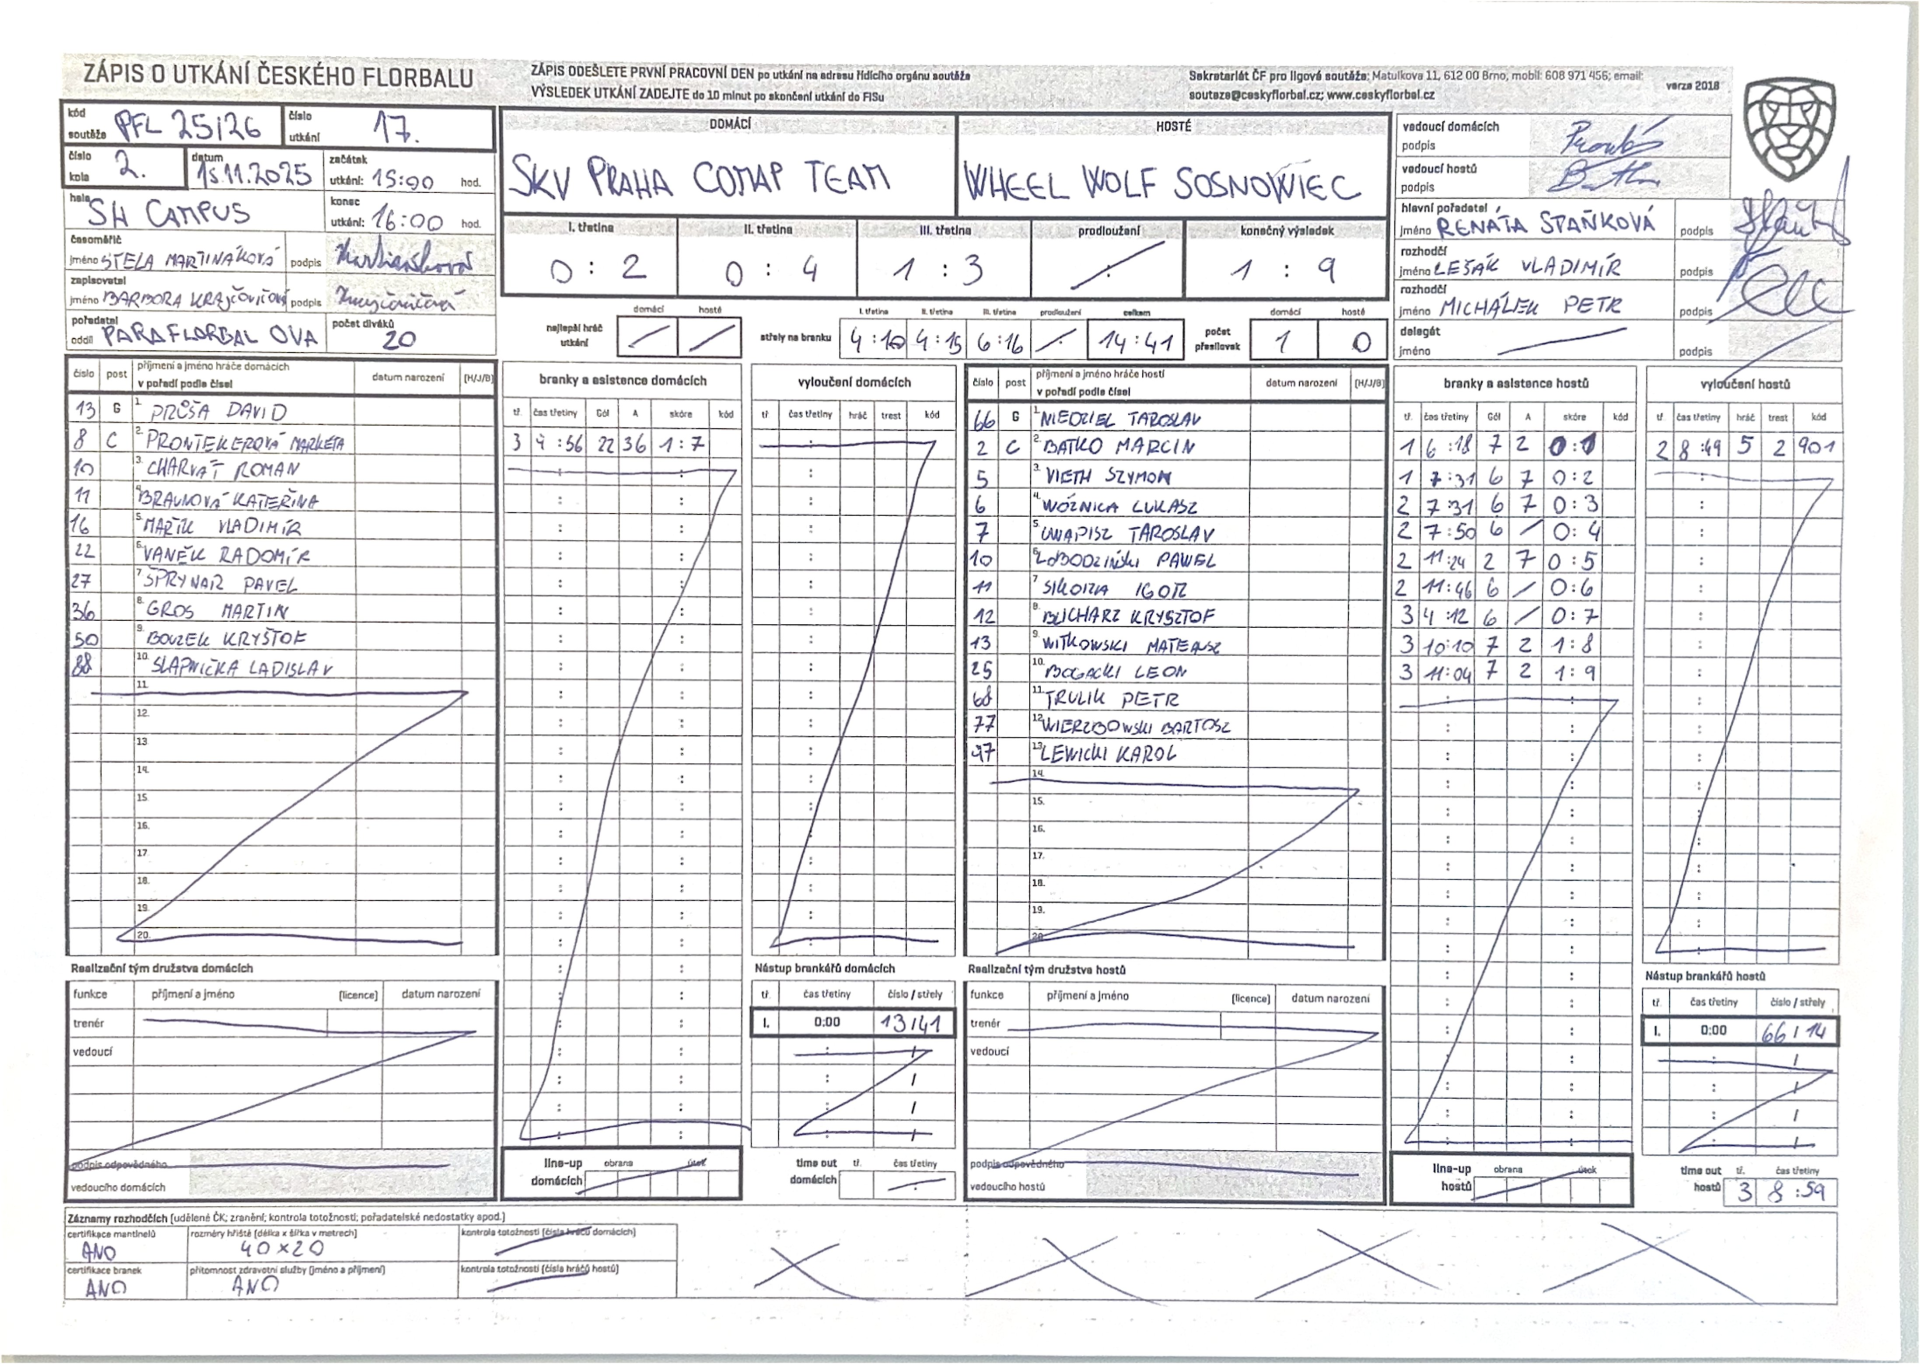 ZÁPIS O UTKÁNÍ ČESKÉHO FLORBALU
ZÁPIS ODEŠLETE PRVNÍ PRACOVNÍ DEN po utkání na adresu řídícího orgánu soutěže
VÝSLEDEK UTKÁNÍ ZADEJTE do 10 minut po skončení utkání do FISu
Sekretariát ČF pro ligové soutěže: Matulkova 11, 612 00 Brno, mobil: 608 971 456; email:
souteze@ceskyflorbal.cz; www.ceskyflorbal.cz
verze 2018
kód soutěže PFL 25/26 číslo utkání 17.
číslo kola 2. datum 15.11.2025 začátek utkání: 15:00 hod.
hala SH CAMPUS konec utkání: 16:00 hod.
časoměřič jméno STELA MARTINÁKOVÁ podpis
zapisovatel jméno BARBORA KRAJČOVIČOVÁ podpis
pořadatel oddíl PARAFLORBAL OVA počet diváků 20
DOMÁCÍ
SKV PRAHA COMAP TEAM
HOSTÉ
WHEEL WOLF SOSNOWIEC
I. třetina II. třetina III. třetina prodloužení konečný výsledek
0 : 2 0 : 4 1 : 3 : 1 : 9
nejlepší hráč utkání domácí hosté
střely na branku I. třetina II. třetina III. třetina prodloužení celkem
4:10 4:15 6:16 14:41
počet přesilovek domácí hosté
1 0
vedoucí domácích podpis
vedoucí hostů podpis
hlavní pořadatel jméno RENÁTA STAŇKOVÁ podpis
rozhodčí jméno LEŠÁK VLADIMÍR podpis
rozhodčí jméno MICHÁLEK PETR podpis
delegát jméno podpis
číslo post příjmení a jméno hráče domácích v pořadí podle čísel datum narození (H/J/B)
13 G 1. PRŮŠA DAVID
8 C 2. PRONTEKEROVÁ MARKÉTA
10 3. CHARVÁT ROMAN
11 4. BRAUNOVÁ KATEŘINA
16 5. MARTK VLADIMÍR
22 6. VANĚK RADOMÍR
27 7. ŠPRYNAR PAVEL
36 8. GROS MARTIN
50 9. BOUZEK KRYŠTOF
88 10. SLAPNIČKA LADISLAV
11.
12.
13
14.
15.
16.
17
18.
19.
20.
branky a asistence domácích
tř. čas třetiny Gól A skóre kód
3 4:56 22 36 1:7
vyloučení domácích
tř čas třetiny hráč trest kód
číslo post příjmení a jméno hráče hostí v pořadí podle čísel datum narození (H/J/B)
66 G 1. NIEDZIEL JAROSLAV
2 C 2. BATKO MARCIN
5 3. VIETH SZYMON
6 4. WOŹNICA LUKASZ
7 5. UNAPISZ JAROSLAV
10 6. ŁOBODZIŃSKI PAWEL
11 7. SIKORA IGOR
12 8. BUCHARZ KRYSZTOF
13 9. WITKOWSKI MATEUSZ
25 10. BOGACKI LEON
68 11. TRULIK PETR
77 12. WIERZBOWSKI BARTOSZ
97 13. LEWICKI KAROL
14.
15.
16.
17.
18.
19.
20.
branky a asistence hostů
tř. čas třetiny Gól A skóre kód
1 6:18 7 2 0:1
1 7:31 6 7 0:2
2 7:31 6 7 0:3
2 7:50 6 / 0:4
2 11:24 2 7 0:5
2 11:46 6 / 0:6
3 4:12 6 / 0:7
3 10:10 7 2 1:8
3 11:04 7 2 1:9
vyloučení hostů
tř. čas třetiny hráč trest kód
2 8:49 5 2 901
Realizační tým družstva domácích
funkce příjmení a jméno (licence) datum narození
trenér
vedoucí
podpis odpovědného vedoucího domácích
Nástup brankářů domácích
tř. čas třetiny číslo / střely
I. 0:00 13/41
line-up domácích obrana útok
time out domácích tř. čas třetiny
Realizační tým družstva hostů
funkce příjmení a jméno (licence) datum narození
trenér
vedoucí
podpis odpovědného vedoucího hostů
Nástup brankářů hostů
tř. čas třetiny číslo / střely
I. 0:00 66/14
line-up hostů obrana útok
time out hostů tř. čas třetiny
3 8:59
Záznamy rozhodčích (udělené ČK; zranění; kontrola totožnosti; pořadatelské nedostatky apod.)
certifikace mantinelů ANO
rozměry hřiště (délka x šířka v metrech) 40×20
kontrola totožnosti (čísla hráčů domácích)
certifikace branek ANO
přítomnost zdravotní služby (jméno a příjmení) ANO
kontrola totožnosti (čísla hráčů hostů)